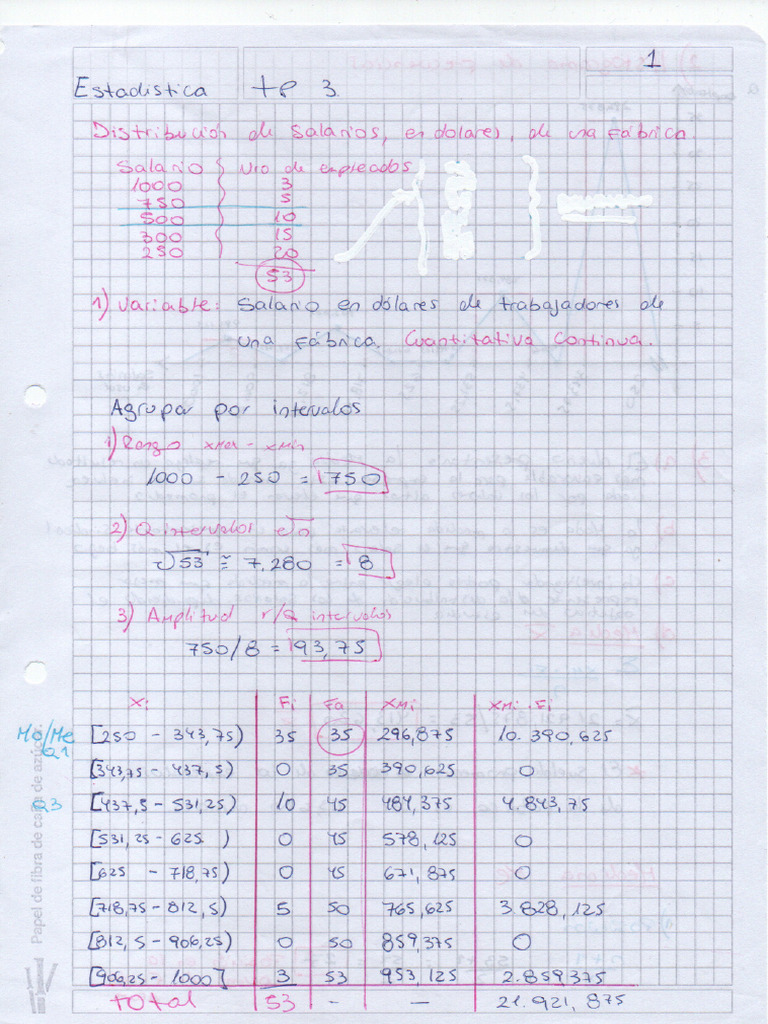 1
Estadística tp 3.
Distribución de salarios, en dolares, de una fábrica.
Salario Nro de empleados
1000 3
750 5
500 10
300 15
250 20
53
1) Variable: Salario en dólares de trabajadores de
una fábrica. Cuantitativa Continua.
Agrupar por intervalos
1) Rango xmax - xmin
1000 - 250 = 750
2) Q intervalos √n
√53 ≅ 7,280 = 8
3) Amplitud r/Q intervalos
750/8 = 93,75
Xi Fi Fa XMi XMi.Fi
Mo/Me Q1 [250 - 343,75) 35 35 296,875 10.390,625
[343,75 - 437,5) 0 35 390,625 0
Q3 [437,5 - 531,25) 10 45 484,375 4.843,75
[531,25 - 625 ) 0 45 578,125 0
[625 - 718,75) 0 45 671,875 0
[718,75 - 812,5) 5 50 765,625 3.828,125
[812,5 - 906,25) 0 50 859,375 0
[906,25 - 1000] 3 53 953,125 2.859375
total 53 - - 21.921,875
Papel de fibra de caña de azúcar.